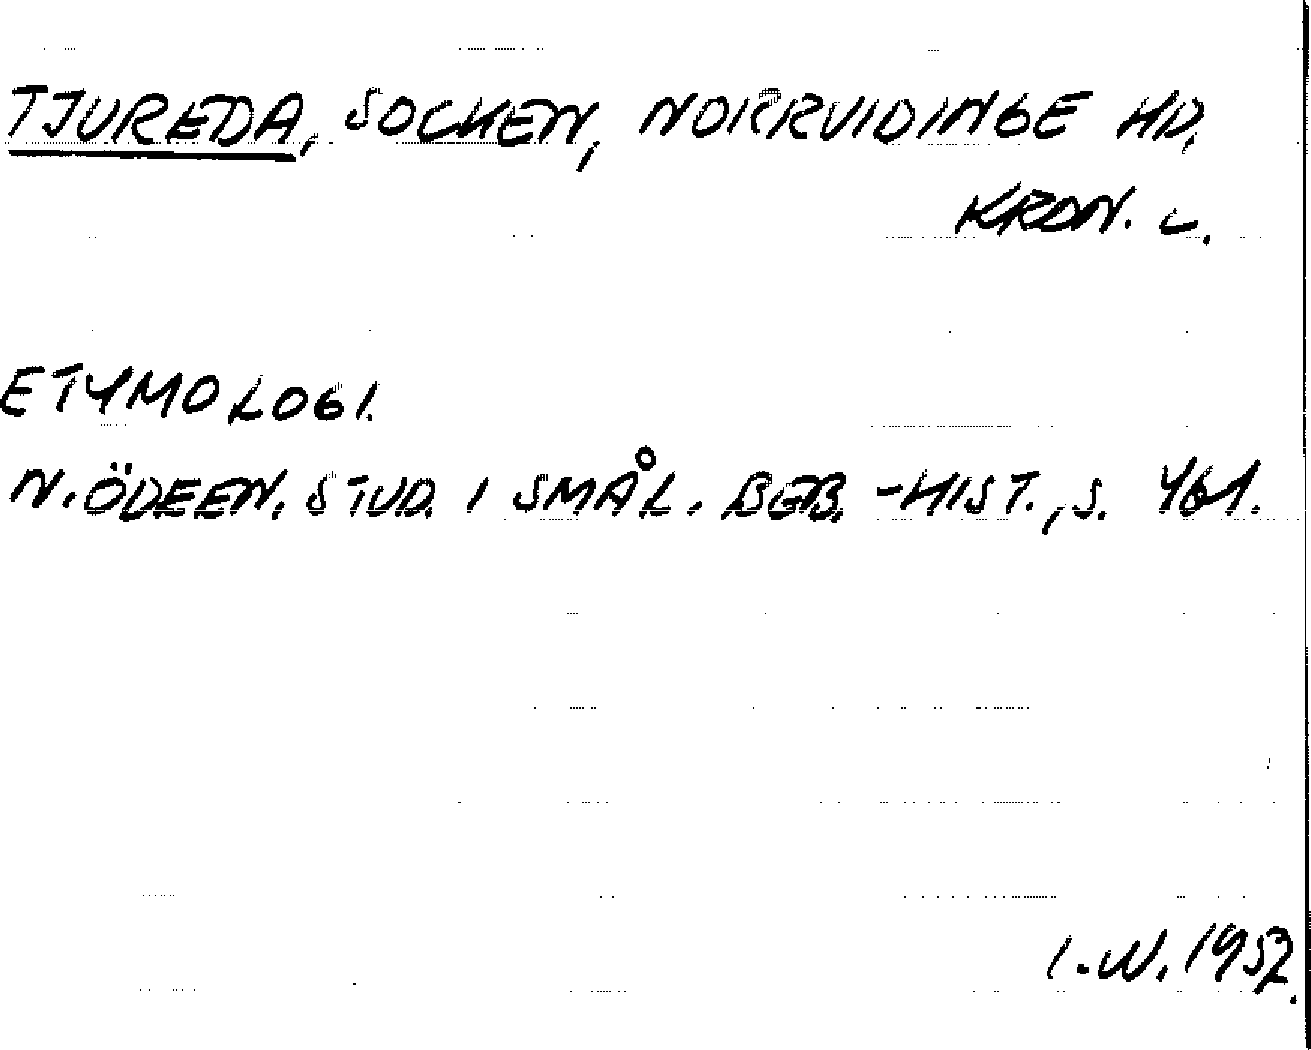 TJUREDA, SOCKEN, NORRVIDINGE HD.
KRON. L.
ETYMOLOGI.
N. ÖDEEN. STUD. I SMÅL. BEB. -HIST., S. 461.
I.W. 1952.